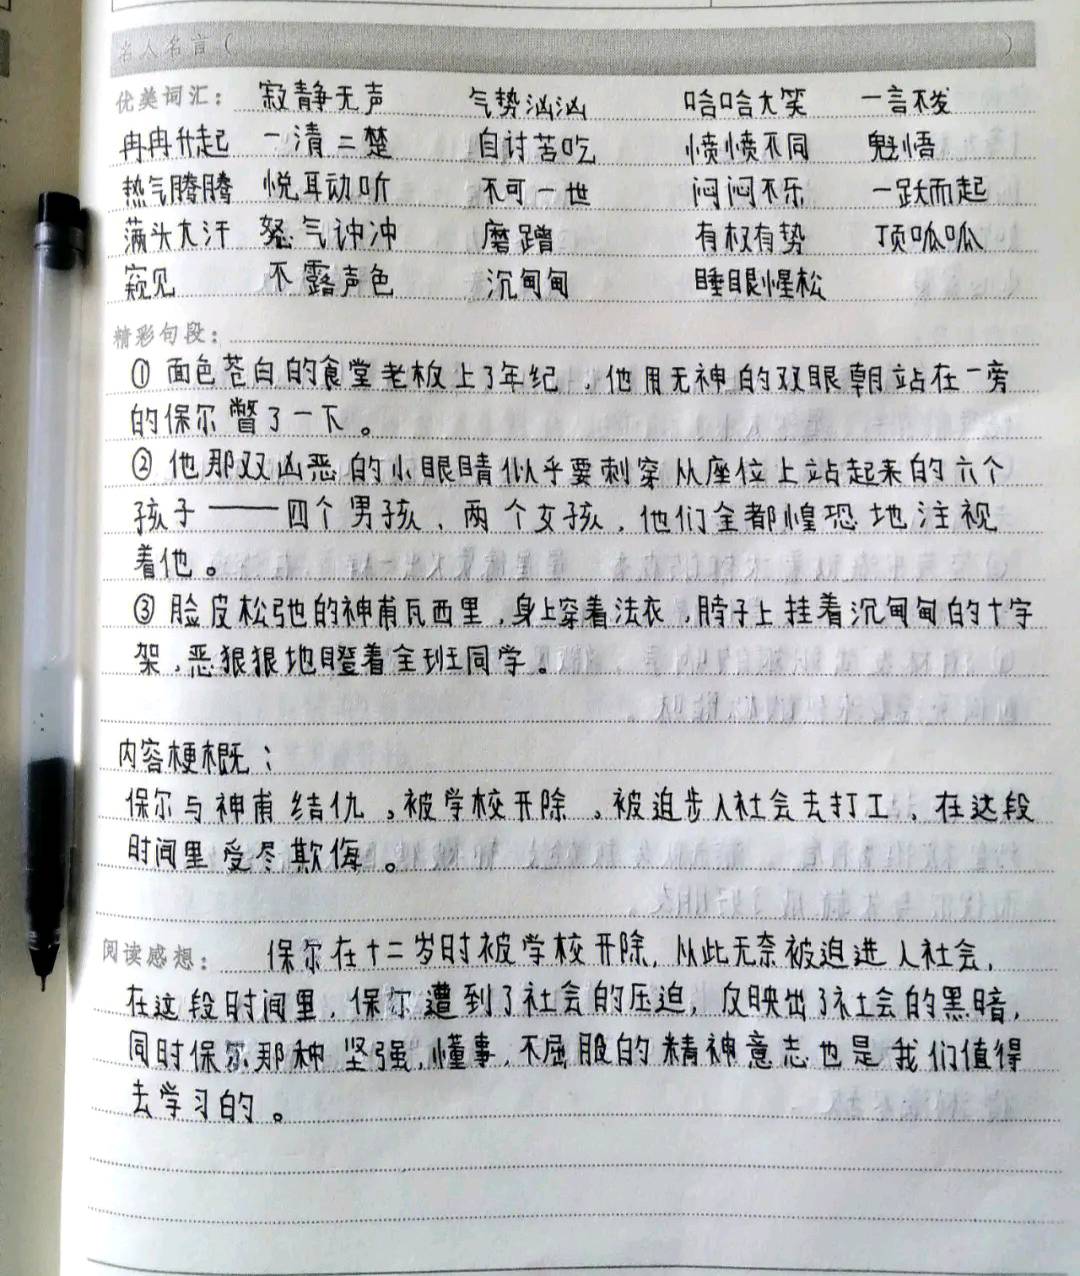 名人名言（ ）
优美词汇： 寂静无声 气势汹汹 哈哈大笑 一言不发
冉冉升起 一清二楚 自讨苦吃 愤愤不同 魁悟
热气腾腾 悦耳动听 不可一世 闷闷不乐 一跃而起
满头大汗 怒气冲冲 磨蹭 有权有势 顶呱呱
窥见 不露声色 沉甸甸 睡眼惺松
精彩句段：
① 面色苍白的食堂老板上了年纪，他用无神的双眼朝站在一旁
的保尔瞥了一下。
② 他那双凶恶的小眼睛似乎要刺穿从座位上站起来的六个
孩子——四个男孩、两个女孩，他们全都惶恐地注视
着他。
③ 脸皮松弛的神甫瓦西里，身上穿着法衣，脖子上挂着沉甸甸的十字
架，恶狠狠地瞪着全班同学。
内容梗概：
保尔与神甫结仇，被学校开除，被迫步入社会去打工，在这段
时间里受尽欺侮。
阅读感想： 保尔在十二岁时被学校开除，从此无奈被迫进入社会，
在这段时间里，保尔遭到了社会的压迫，反映出了社会的黑暗，
同时保尔那种坚强，懂事，不屈服的精神意志也是我们值得
去学习的。